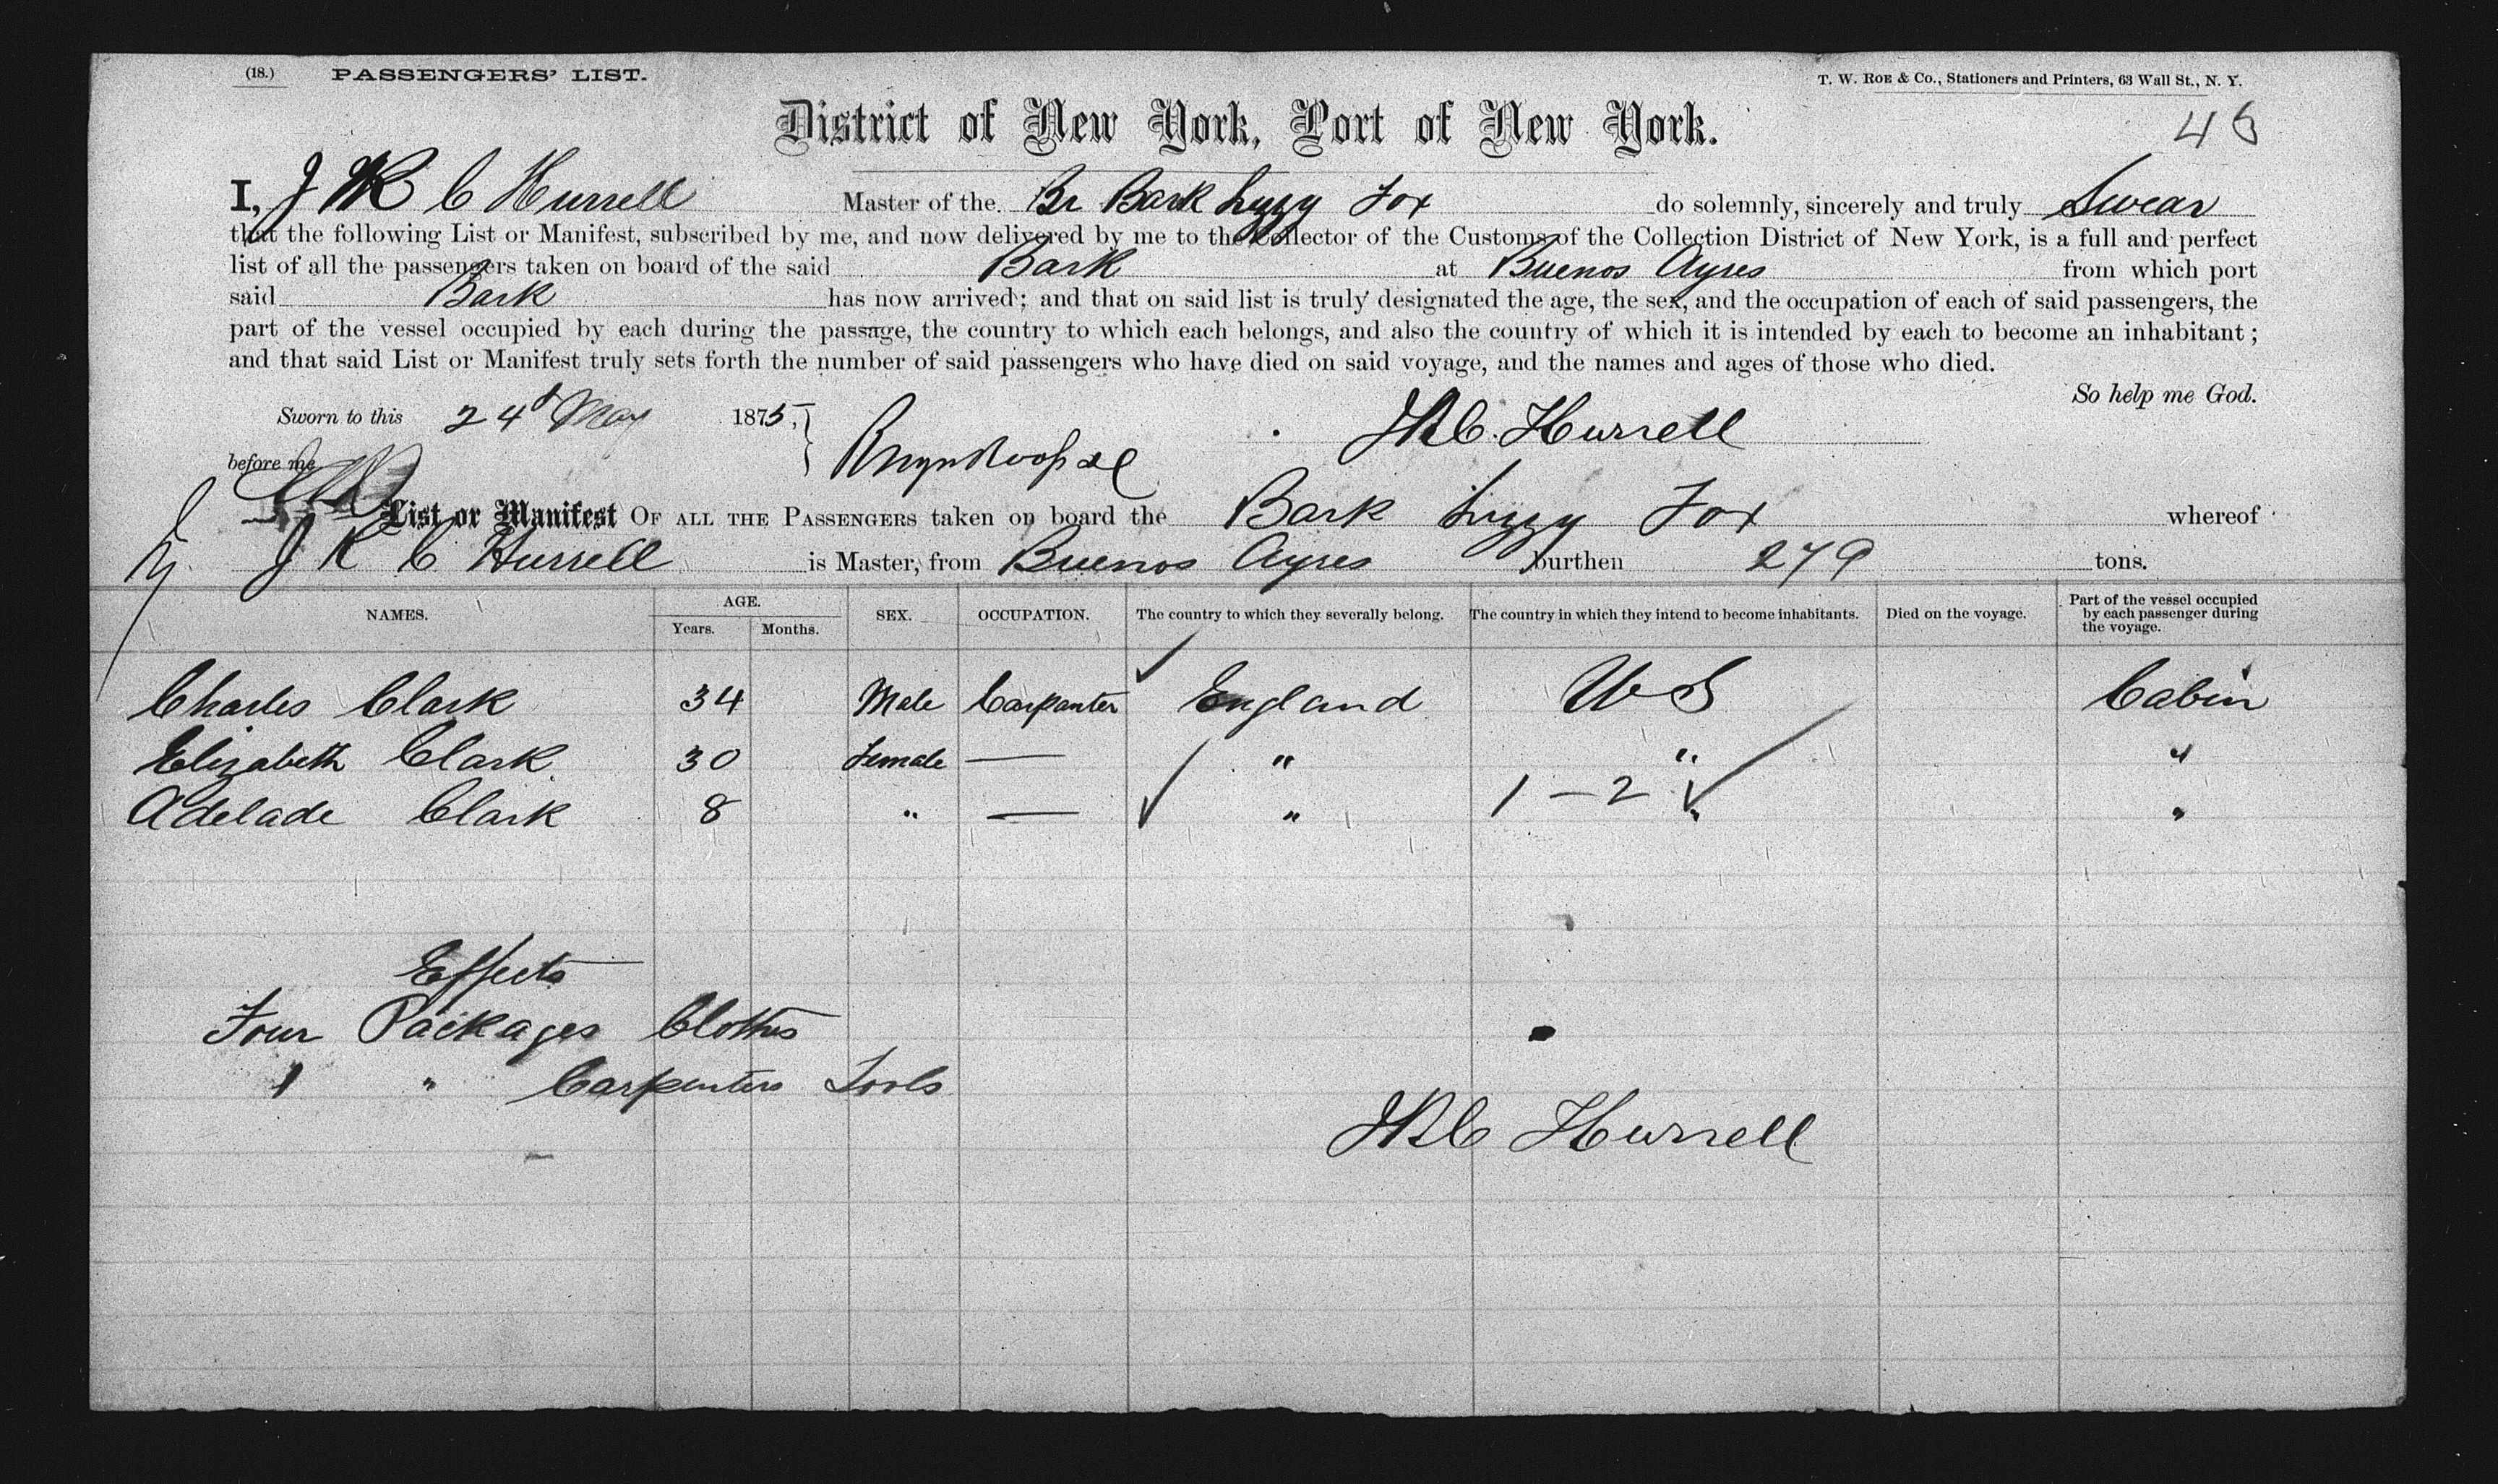 (18.) PASSENGERS' LIST. T. W. ROE & Co., Stationers and Printers, 63 Wall St., N. Y.
District of New York, Port of New York.
I, J R C Hurrell Master of the Br Bark Lizzy Fox do solemnly, sincerely and truly Swear
that the following List or Manifest, subscribed by me, and now delivered by me to the Collector of the Customs of the Collection District of New York, is a full and perfect
list of all the passengers taken on board of the said Bark at Buenos Ayres from which port
said Bark has now arrived; and that on said list is truly designated the age, the sex, and the occupation of each of said passengers, the
part of the vessel occupied by each during the passage, the country to which each belongs, and also the country of which it is intended by each to become an inhabitant;
and that said List or Manifest truly sets forth the number of said passengers who have died on said voyage, and the names and ages of those who died.
So help me God.
Sworn to this 24th May 1875, JRC. Hurrell
before me
List or Manifest OF ALL THE PASSENGERS taken on board the Bark Lizzy Fox whereof
J R C Hurrell is Master, from Buenos Ayres burthen 279 tons.
NAMES. AGE. Years. Months. SEX. OCCUPATION. The country to which they severally belong. The country in which they intend to become inhabitants. Died on the voyage. Part of the vessel occupied by each passenger during the voyage.
Charles Clark 34 Male Carpenter England US Cabin
Elizabeth Clark 30 Female — " " "
Adelade Clark 8 " — " 1 - 2 " "
Effects
Four Packages Clothes
1 " Carpenters Tools
JRC Hurrell